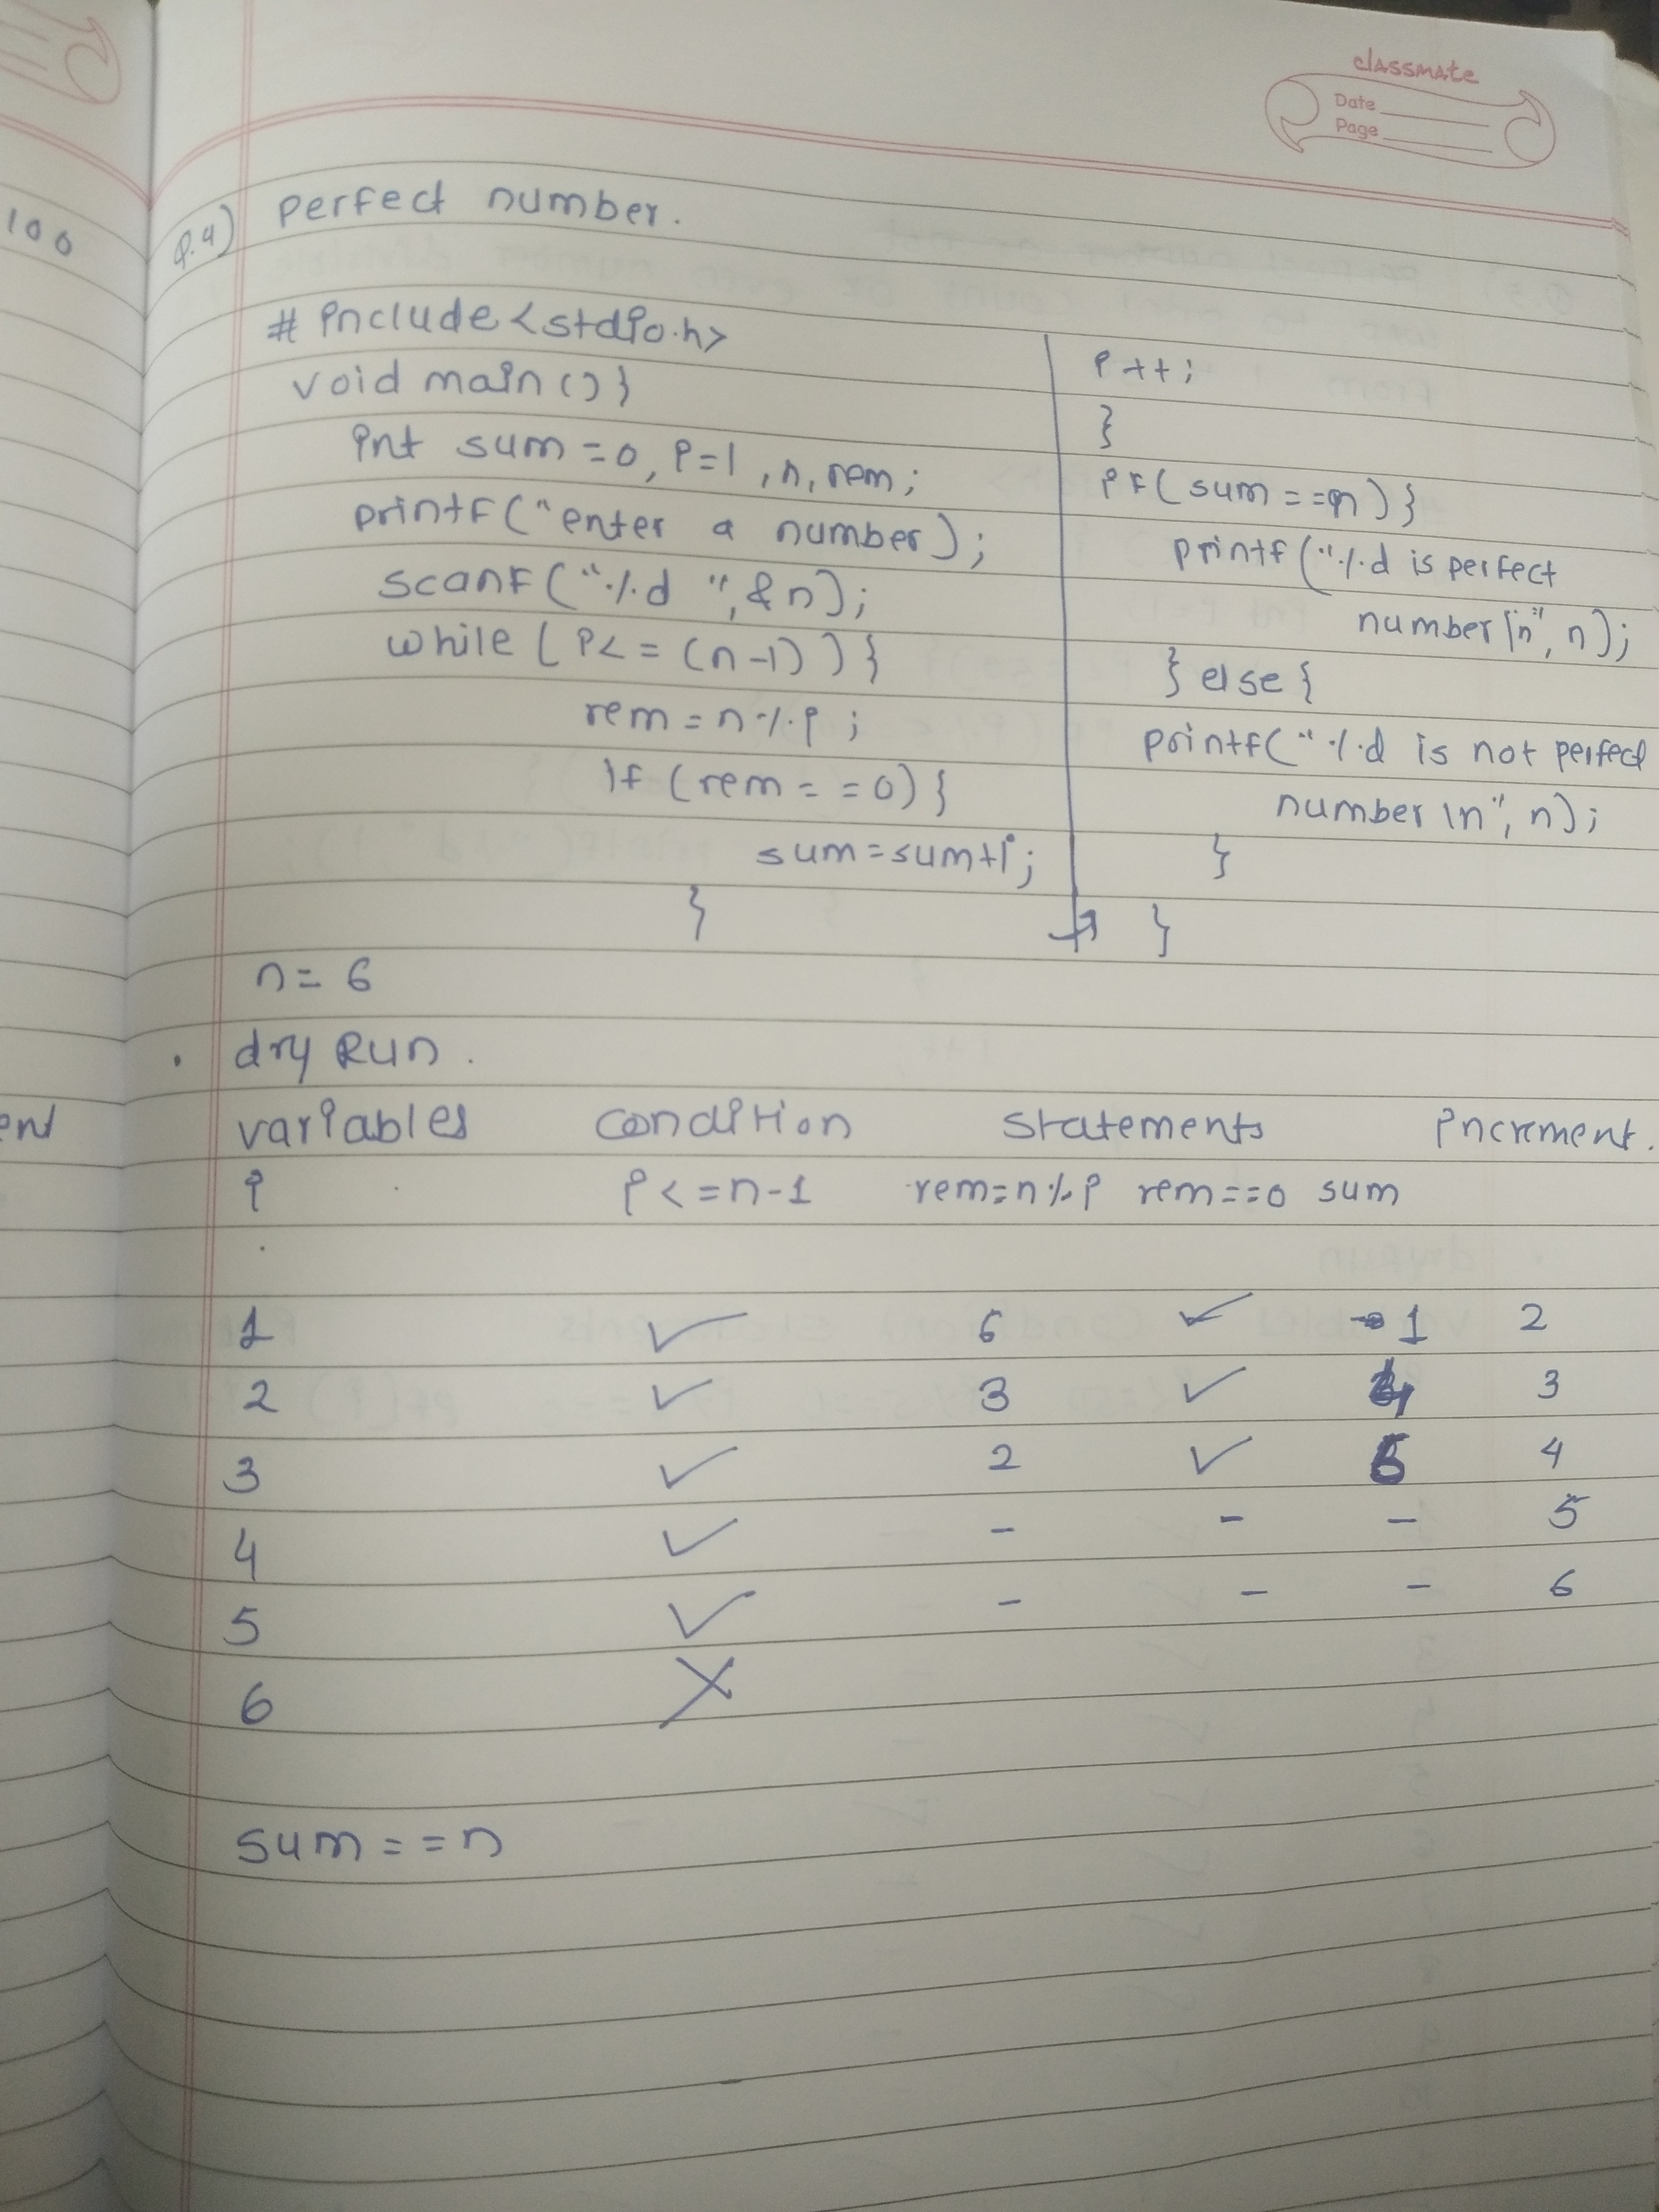 classmate
Date
Page
100
Q.4) perfect number.
# include<stdio.h>
void main(){
int sum=0, i=1, n, rem;
printf("enter a number);
scanf("%d ",&n);
while(i<=(n-1)){
rem=n%i;
if(rem==0){
sum=sum+i;
}
i++;
}
if(sum==n){
printf("%d is perfect
number\n", n);
} else {
printf("%d is not perfect
number \n", n);
}
}
n=6
• dry Run.
ent
variables condition statements increment.
i i<=n-1 rem=n%i rem==0 sum
1 ✓ 6 ✓ 1 2
2 ✓ 3 ✓ 3
3 ✓ 2 ✓ 6 4
4 ✓ - - - 5
5 ✓ - - - 6
6 ✗
sum==n